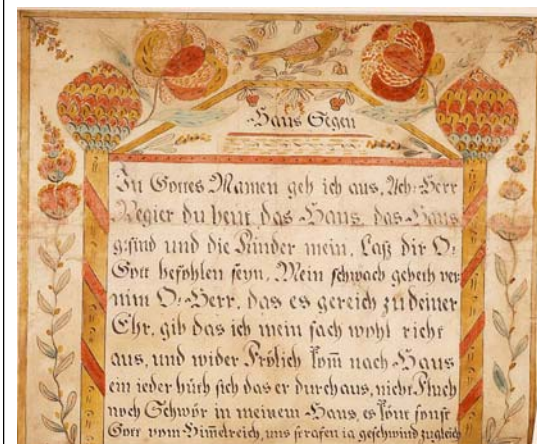 Haus Segen
In Gottes Namen geh ich aus, Ach: Herr
Regier du heut das Haus, das Haus
gesind und die Kinder mein. Laß dir O:
Gott befohlen seyn. Mein schwach gebeth ver
nim O: Herr, das es gereich zu deiner
Ehr, gib das ich mein sach wohl richt
aus, und wider Frölich kom̄ nach Haus
ein ieder hüth sich das er durchaus, nicht Fluch
noch Schwör in meinem Haus, es kömt sonst
Gott vom Him̄elreich, uns strafen ia geschwind zugleich